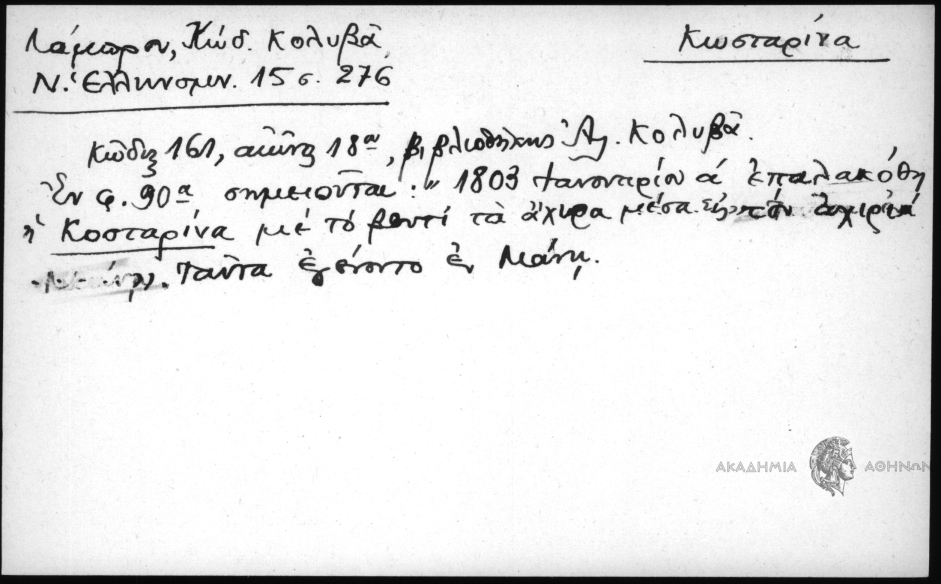 Λάμπρου, Κώδ. Κολυβᾶ
Ν. Ἑλληνομν. 15 σ. 276
Κωσταρίνα
Κῶδιξ 161, αἰῶνος 18ου, βιβλιοθήκης Ἀλ. Κολυβᾶ.
Ἐν φ. 90α σημειοῦται: „ 1803 Ἰανουαρίου ά ἐπαλακόθη
ἡ Κοσταρίνα μέ τό βουτί τὰ ἄχιρα μέσα
Ταῦτα ἐγένοντο ἐν Μάνῃ.
ΑΚΑΔΗΜΙΑ ΑΘΗΝΩΝ